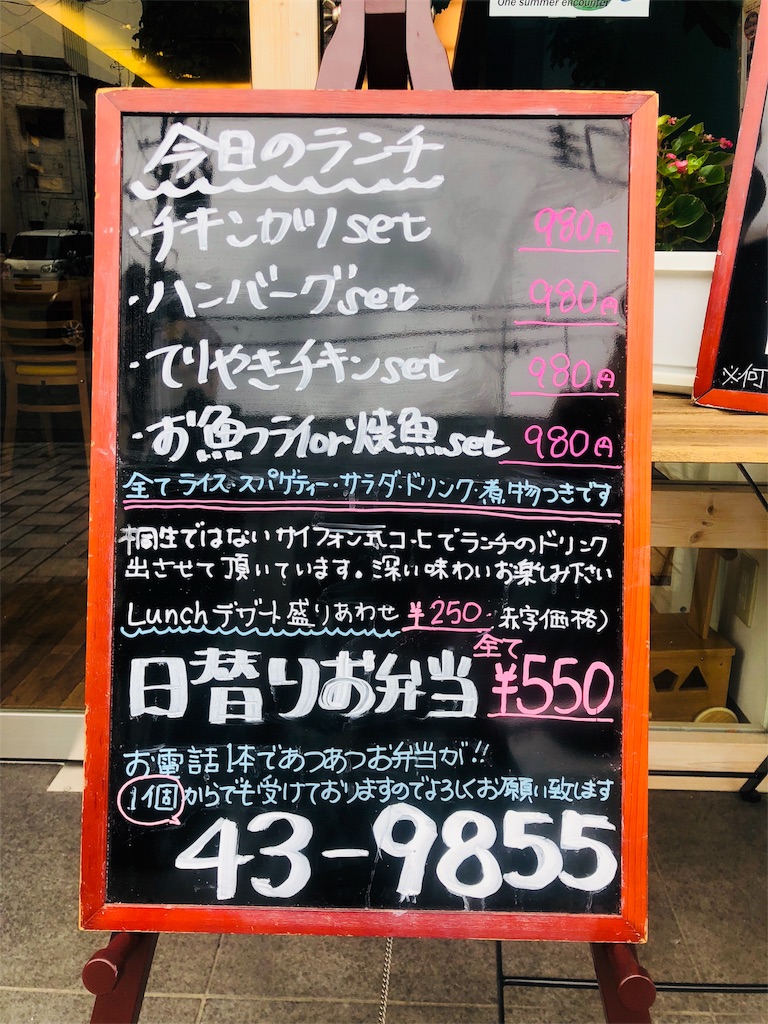 One summer encounter
今日のランチ
・チキンカツset 980円
・ハンバーグset 980円
・てりやきチキンset 980円
・お魚フライor焼魚set 980円
全てライス・スパゲティー・サラダ・ドリンク・煮物つきです
桐生ではないサイフォン式コーヒーでランチのドリンク
出させて頂いています。深い味わいお楽しみ下さい
Lunchデザート盛りあわせ ¥250 赤字価格)
日替りお弁当 全て ¥550
お電話1本であつあつお弁当が!!
1個からでも受けておりますのでよろしくお願い致します
43-9855
※何